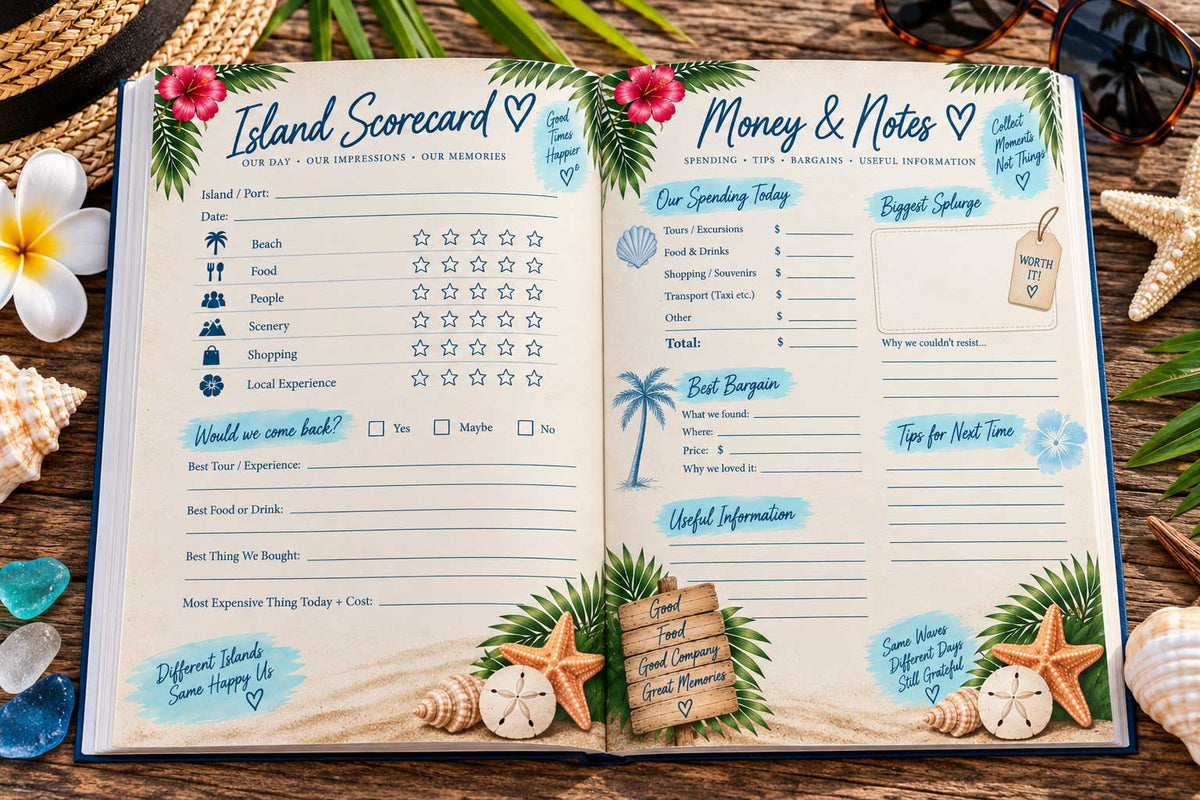 Island Scorecard
OUR DAY • OUR IMPRESSIONS • OUR MEMORIES
Good
Times
Happier
Island / Port:
Date:
Beach
Food
People
Scenery
Shopping
Local Experience
Would we come back?
Yes
Maybe
No
Best Tour / Experience:
Best Food or Drink:
Best Thing We Bought:
Most Expensive Thing Today + Cost:
Different Islands
Same Happy Us
Money & Notes
SPENDING • TIPS • BARGAINS • USEFUL INFORMATION
Collect
Moments
Not Things
Our Spending Today
Tours / Excursions $
Food & Drinks $
Shopping / Souvenirs $
Transport (Taxi etc.) $
Other $
Total: $
Biggest Splurge
WORTH
IT!
Why we couldn't resist...
Best Bargain
What we found:
Where:
Price: $
Why we loved it:
Tips for Next Time
Useful Information
Good
Food
Good Company
Great Memories
Same Waves
Different Days
Still Grateful